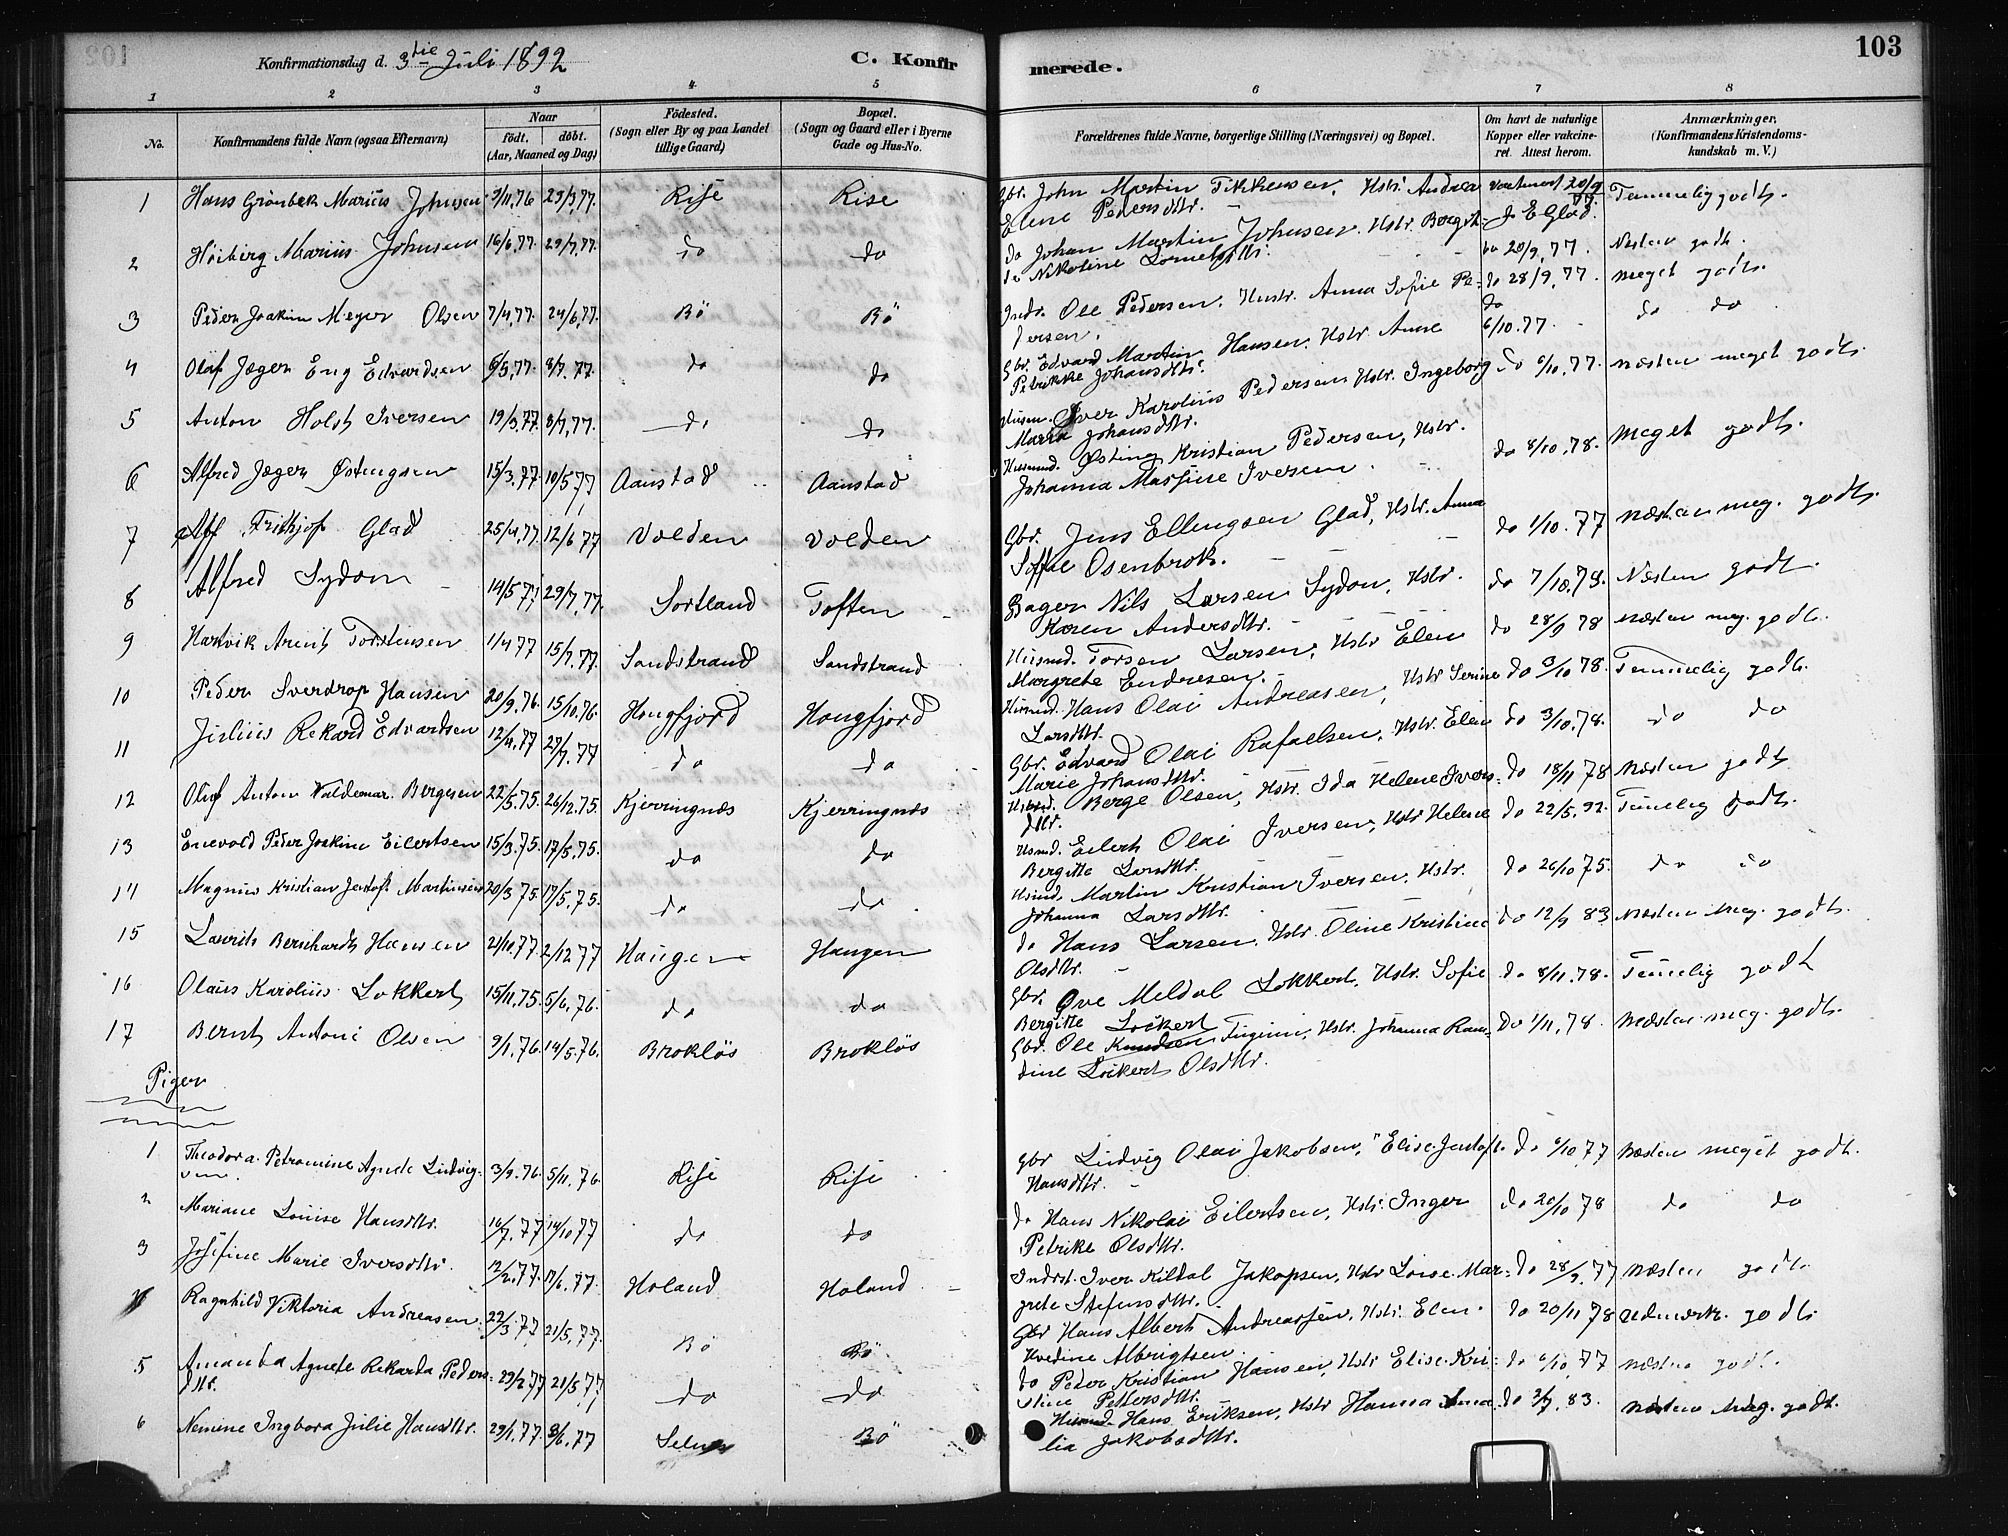 Konfirmationsdag d. 3die Juli 1892
C. Konfir
merede.
103
1 2 3 4 5 6 7 8
No.
Konfirmandens fulde Navn (ogsaa Efternavn)
Naar
födt. döbt.
(Aar, Maaned og Dag)
Födested.
(Sogn eller By og paa Landet
tillige Gaard)
Bopæl.
(Sogn og Gaard eller i Byerne
Gade og Hus-No.
Forældrenes fulde Navne, borgerlige Stilling (Næringsvei) og Bopæl.
Om havt de naturlige
Kopper eller vakcine-
ret. Attest herom.
Anmærkninger.
(Konfirmandens Kristendoms-
kundskab m. V.)
1 Hans Grönbek Marius Johnsen 3/11.76 29/3.77. Rise Rise Gbr. John Martin Hstr. Andrea 20/9 77 Temmelig godt.
Elene Pedersdtr. J E Glad.
2 Höiberg Marius Johnsen 16/6.77. 29/7.77. do do do Johan Martin Johnsen. Hstr. Bergit- do 20/9.77. Næsten godt.
te Nikoline
3 Peder Joakim Meyer Olsen 7/4.77. 24/6.77. Bö Bö Inds. Ole Pedersen. Hustr. Anna Sofie Pe- do 28/9.77. meget godt.
dersen.
4 Olaf Jæger Eng Edvardsen 6/5.77. 8/7.77. do do Gbr. Edvard Martin Hansen. Hstr. Anne do 6/10.77. do do
Petrikke Johansdtr.
5 Anton Holst Iversen 19/3.77. 8/7.77. do do Husm. Iver Karolius Pedersen Hstr. Ingeborg do 6/10.77. næsten meget godt.
Maria Johansdtr.
6 Alfred Jæger Östengsen 15/3.77. 10/5.77 Aanstad Aanstad Husmd. Östing Kristian Pedersen, Hstr. do 8/10.78. meget godt.
Johanna Massine Iversen.
7 Alf Frithjof Glad 25/4.77. 12/6 77 Volden Volden Gbr. Jens Ellingsen Glad, Hstr. Anna do 1/10.77 næsten meg. godt.
Soffie Osenbrok.
8 Alfred Sydon 14/5 77 29/7.77. Sortland Toften Bager Nils Larsen Sydon, Hstr. do 7/10.78. Næsten godt.
Karen Andersdtr.
9 Hartvik Arent Torstensen 1/4 77 15/7.77. Sandstrand Sandstrand Husmd. Torsen Larsen, Hstr Elen do 28/9 78 næsten meg. godt.
Margrete Endresen.
10 Peder Sverdrop Hansen 20/9.76. 15/10.76. Hougfjord Hougfjord Husmd. Hans Olai Andreasen, Hstr Serine do 3/10 78. Temmelig godt.
Larsdtr.
11 Julius Rekard Edvardsen 12/4.77 29/7.77 do do Gbr. Edvard Olai Rafaelsen, Hstr. Elen do 3/10.78. do do
Marie Johansdtr.
12 Oluf Anton Valdemar Bergesen 22/5.75. 26/12.75. Kjerringnæs Kjerringnæs Husmd. Berge Olsen, Hstr. Ida Helene Ivers- do 18/11 78 næsten godt
dtr.
13 Enevold Peder Joakim Eilertsen 15/3.75. 17/5.75. do do Husmd. Eilert Olai Iversen, Hstr Helene do 22/5.92. Temelig godt.
Bergitte Larsdtr.
14 Magnus Kristian Jentoft Martinsen 20/3 75. 17/5.75. do do Husmd. Martin Kristian Iversen, Hstr. do 26/10 75. do do
Johanna Larsdtr.
15 Laurits Bernhardt Hansen 21/10.77. 2/12 77 Haugen Haugen do Hans Larsen. Hstr. Oline Kristine do 12/9 83 Næsten meg. godt.
Olsdtr.
16 Olaus Karolius Lokkert 15/11.75. 5/6.76. do do Gbr. Ove Meldal Lokkert, Hstr. Sofie do 8/11.78. Temelig godt
Bergitte Lockert
17 Bernt Antoni Olsen 9/1.76. 14/5.76. Broklös Broklös Gbr. Ole Knudsen Hstr. Johanna Ran- do 1/11.78. Næsten meg. godt.
dine Lockert Olsdtr.
Piger
1 Theodora Petromine Agnete Ludvig- 3/9.76. 5/11.76. Rise Rise Gbr Ludvig Olai Jakobsen, " Elise Jentoft do 6/10 77 Næsten meget godt.
sen. Hansdtr.
2 Mariane Louise Hansdtr. 16/7.77 14/10 77 do do do Hans Nikolai Eilertsen, Hstr. Inger do 20/10 78 do do
Petrike Olsdtr.
3 Josefine Marie Iversdtr. 12/2.77. 17/6.77. Holand Holand Indrst. Iver Kildal Jakopsen, Hstr Loise Mar- do 28/9.77 Næsten godt.
grete Stefensdtr.
4 Ragnhild Viktoria Andreasen 22/3 77 21/5.77. Bö Bö Gbr Hans Albert Andreassen, Hstr. Elen do 20/11 78 Udmærk. godt.
Hvedine Albrigtsen.
5 Amanda Agnete Rekarda Peders- 29/2 77 21/5.77 do do do Peder Kristian Hansen, Hstr Elise Kri- do 6/10.77 næsten godt.
dtr. stine Pettersdtr.
6 Nemine Ingbora Julie Hansdtr. 29/1.77. 3/6.77 Selnes Bö Husmd. Hans Eriksen, Hstr Hanna Ama- do 3/7.83. næsten meg. godt.
lia Jakobsdtr.